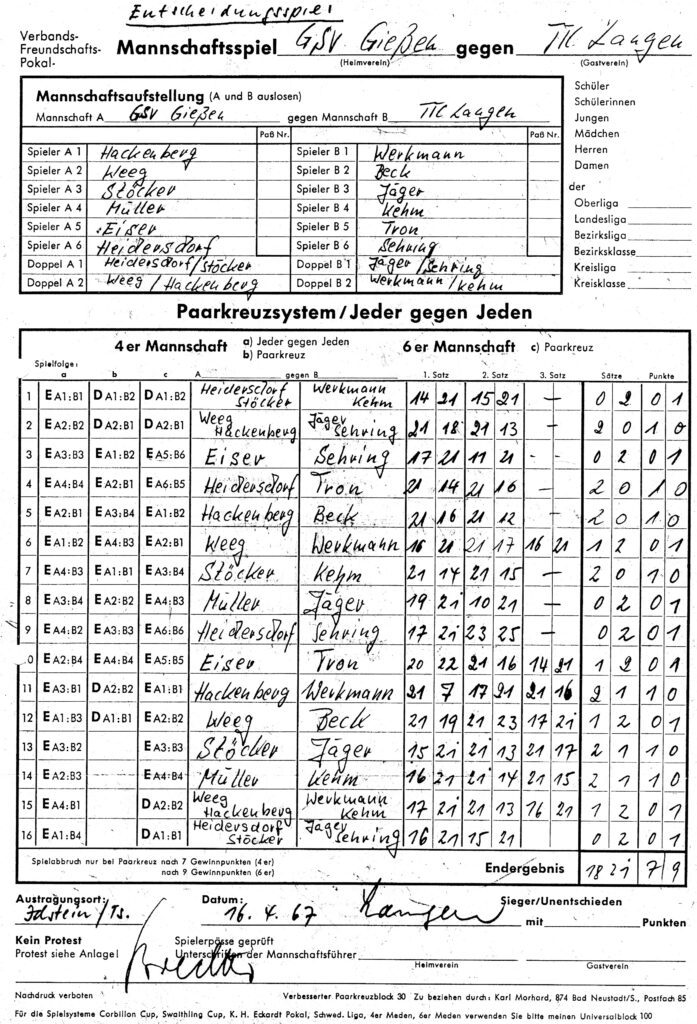 Entscheidungsspiel
Verbands-
Freundschafts-
Pokal-
Mannschaftsspiel GSV Gießen gegen TTC Langen
(Heimverein) (Gastverein)
Mannschaftsaufstellung (A und B auslosen)
Mannschaft A GSV Gießen gegen Mannschaft B TTC Langen
Paß Nr. Paß Nr.
Spieler A 1 Hackenberg Spieler B 1 Werkmann
Spieler A 2 Weeg Spieler B 2 Beck
Spieler A 3 Stöcker Spieler B 3 Jäger
Spieler A 4 Müller Spieler B 4 Kehm
Spieler A 5 Eiser Spieler B 5 Tron
Spieler A 6 Heidersdorf Spieler B 6 Sehring
Doppel A 1 Heidersdorf/Stöcker Doppel B 1 Jäger/Sehring
Doppel A 2 Weeg/Hackenberg Doppel B 2 Werkmann/Kehm
Schüler
Schülerinnen
Jungen
Mädchen
Herren
Damen
der
Oberliga
Landesliga
Bezirksliga
Bezirksklasse
Kreisliga
Kreisklasse
Paarkreuzsystem/Jeder gegen Jeden
4 er Mannschaft a) Jeder gegen Jeden 6 er Mannschaft c) Paarkreuz
b) Paarkreuz
Spielfolge:
a b c A gegen B 1. Satz 2. Satz 3. Satz Sätze Punkte
1 E A1:B1 D A1:B2 D A1:B2 Heidersdorf Stöcker Werkmann Kehm 14 21 15 21 – 0 2 0 1
2 E A2:B2 D A2:B1 D A2:B1 Weeg Hackenberg Jäger Sehring 21 18 21 13 – 2 0 1 0
3 E A3:B3 E A1:B2 E A5:B6 Eiser Sehring 17 21 11 21 - - 0 2 0 1
4 E A4:B4 E A2:B1 E A6:B5 Heidersdorf Tron 21 14 21 16 – 2 0 1 0
5 E A2:B1 E A3:B4 E A1:B2 Hackenberg Beck 21 16 21 12 – 2 0 1 0
6 E A1:B2 E A4:B3 E A2:B1 Weeg Werkmann 16 21 21 17 16 21 1 2 0 1
7 E A4:B3 E A1:B1 E A3:B4 Stöcker Kehm 21 14 21 15 – 2 0 1 0
8 E A3:B4 E A2:B2 E A4:B3 Müller Jäger 19 21 10 21 – 0 2 0 1
9 E A4:B2 E A3:B3 E A6:B6 Heidersdorf Sehring 17 21 23 25 – 0 2 0 1
10 E A2:B4 E A4:B4 E A5:B5 Eiser Tron 20 22 21 16 14 21 1 2 0 1
11 E A3:B1 D A2:B2 E A1:B1 Hackenberg Werkmann 21 7 17 21 21 16 2 1 1 0
12 E A1:B3 D A1:B1 E A2:B2 Weeg Beck 21 19 21 23 17 21 1 2 0 1
13 E A3:B2 E A3:B3 Stöcker Jäger 15 21 21 13 21 17 2 1 1 0
14 E A2:B3 E A4:B4 Müller Kehm 16 21 21 14 21 15 2 1 1 0
15 E A4:B1 D A2:B2 Weeg Hackenberg Werkmann Kehm 17 21 21 13 16 21 1 2 0 1
16 E A1:B4 D A1:B1 Heidersdorf Stöcker Jäger Sehring 16 21 15 21 0 2 0 1
Spielabbruch nur bei Paarkreuz nach 7 Gewinnpunkten (4 er)
nach 9 Gewinnpunkten (6 er)
Endergebnis 18 21 7 9
Austragungsort: Datum: Sieger/Unentschieden
Idstein/Ts. 16. 4. 67 Langen mit Punkten
Kein Protest Spielerpässe geprüft
Protest siehe Anlage! Unterschriften der Mannschaftsführer
Heimverein Gastverein
Nachdruck verboten Verbesserter Paarkreuzblock 30 Zu beziehen durch: Karl Morhard, 874 Bad Neustadt/S., Postfach 85
Für die Spielsysteme Corbillon Cup, Swaithling Cup, K. H. Eckardt Pokal, Schwed. Liga, 4er Meden, 6er Meden verwenden Sie bitte meinen Universalblock 100